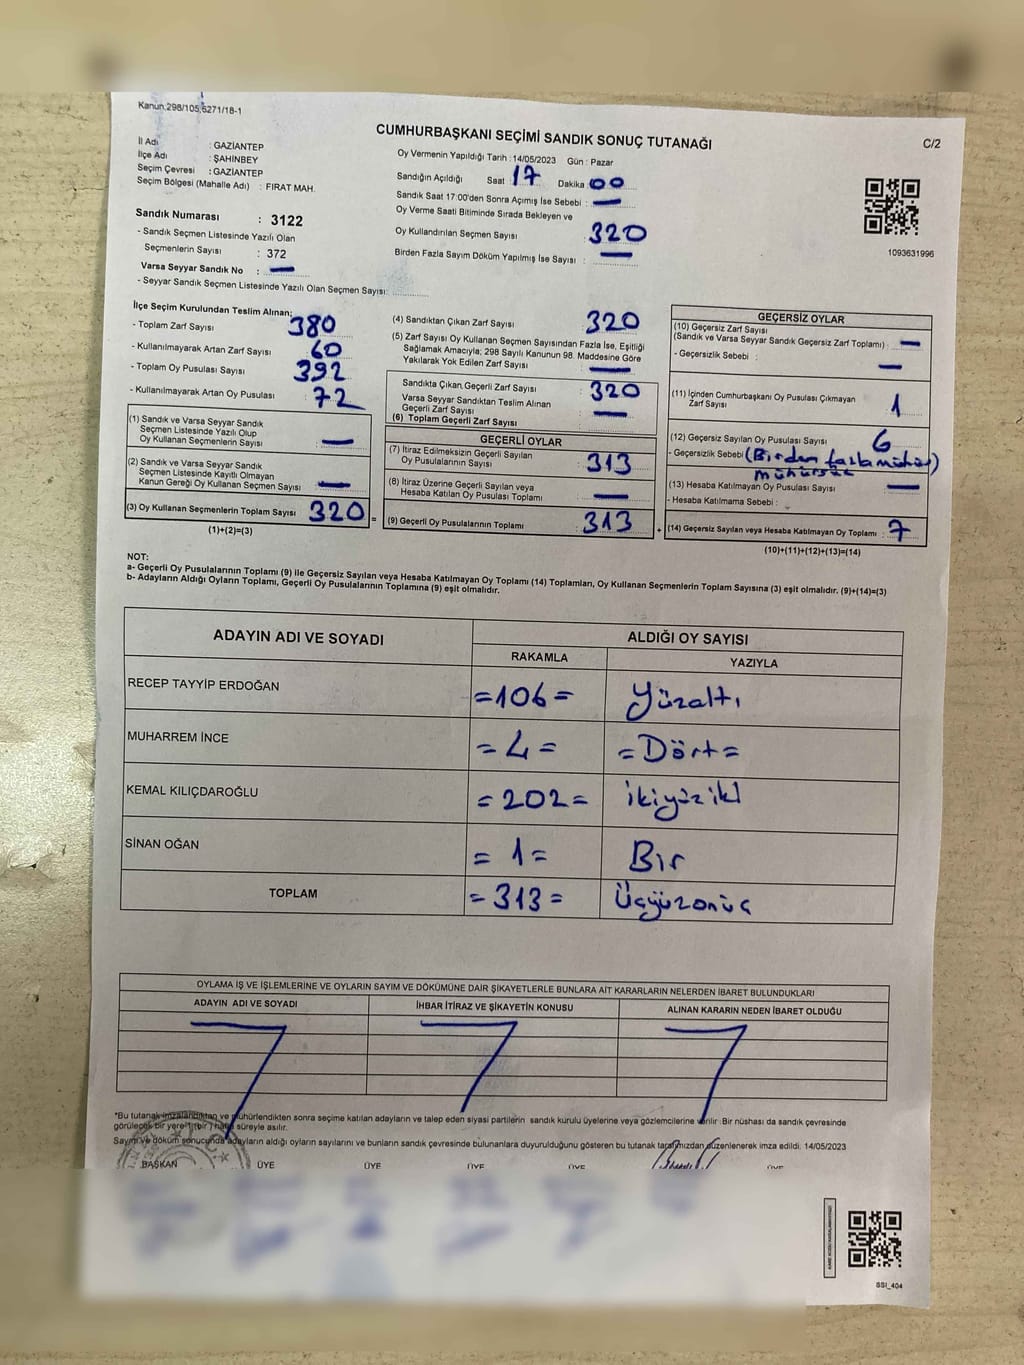 Kanun:298/105,6271/18-1
CUMHURBAŞKANI SEÇİMİ SANDIK SONUÇ TUTANAĞI
C/2
İl Adı : GAZİANTEP
İlçe Adı : ŞAHİNBEY
Seçim Çevresi : GAZİANTEP
Seçim Bölgesi (Mahalle Adı) : FIRAT MAH.
Sandık Numarası : 3122
- Sandık Seçmen Listesinde Yazılı Olan
Seçmenlerin Sayısı : 372
Varsa Seyyar Sandık No : —
- Seyyar Sandık Seçmen Listesinde Yazılı Olan Seçmen Sayısı:
Oy Vermenin Yapıldığı Tarih :14/05/2023 Gün : Pazar
Sandığın Açıldığı Saat 17 Dakika 00
Sandık Saat 17:00'den Sonra Açımış İse Sebebi : —
Oy Verme Saati Bitiminde Sırada Bekleyen ve
Oy Kullandırılan Seçmen Sayısı : 320
Birden Fazla Sayım Döküm Yapılmış İse Sayısı : —
1093631996
İlçe Seçim Kurulundan Teslim Alınan;
- Toplam Zarf Sayısı 380
- Kullanılmayarak Artan Zarf Sayısı 60
- Toplam Oy Pusulası Sayısı 392
- Kullanılmayarak Artan Oy Pusulası : 72
(1) Sandık ve Varsa Seyyar Sandık
Seçmen Listesinde Yazılı Olup
Oy Kullanan Seçmenlerin Sayısı : —
(2) Sandık ve Varsa Seyyar Sandık
Seçmen Listesinde Kayıtlı Olmayan
Kanun Gereği Oy Kullanan Seçmen Sayısı : —
(3) Oy Kullanan Seçmenlerin Toplam Sayısı : 320 =
(1)+(2)=(3)
(4) Sandıktan Çıkan Zarf Sayısı : 320
(5) Zarf Sayısı Oy Kullanan Seçmen Sayısından Fazla İse, Eşitliği
Sağlamak Amacıyla; 298 Sayılı Kanunun 98. Maddesine Göre
Yakılarak Yok Edilen Zarf Sayısı : —
Sandıkta Çıkan Geçerli Zarf Sayısı : 320
Varsa Seyyar Sandıktan Teslim Alınan
Geçerli Zarf Sayısı : —
(6) Toplam Geçerli Zarf Sayısı
GEÇERLİ OYLAR
(7) İtiraz Edilmeksizin Geçerli Sayılan
Oy Pusulalarının Sayısı : 313
(8) İtiraz Üzerine Geçerli Sayılan veya
Hesaba Katılan Oy Pusulası Toplamı : —
(9) Geçerli Oy Pusulalarının Toplamı : 313 +
GEÇERSİZ OYLAR
(10) Geçersiz Zarf Sayısı
(Sandık ve Varsa Seyyar Sandık Geçersiz Zarf Toplamı) : —
- Geçersizlik Sebebi : —
(11) İçinden Cumhurbaşkanı Oy Pusulası Çıkmayan
Zarf Sayısı : 1
(12) Geçersiz Sayılan Oy Pusulası Sayısı : 6
- Geçersizlik Sebebi (Birden fazla mühür)
mühürsüz
(13) Hesaba Katılmayan Oy Pusulası Sayısı : —
- Hesaba Katılmama Sebebi :
(14) Geçersiz Sayılan veya Hesaba Katılmayan Oy Toplamı : 7
(10)+(11)+(12)+(13)=(14)
NOT:
a- Geçerli Oy Pusulalarının Toplamı (9) ile Geçersiz Sayılan veya Hesaba Katılmayan Oy Toplamı (14) Toplamları, Oy Kullanan Seçmenlerin Toplam Sayısına (3) eşit olmalıdır. (9)+(14)=(3)
b- Adayların Aldığı Oyların Toplamı, Geçerli Oy Pusulalarının Toplamına (9) eşit olmalıdır.
ADAYIN ADI VE SOYADI ALDIĞI OY SAYISI
RAKAMLA YAZIYLA
RECEP TAYYİP ERDOĞAN =106= Yüzaltı
MUHARREM İNCE =4= =Dört=
KEMAL KILIÇDAROĞLU =202= ikiyüziki
SİNAN OĞAN =1= Bir
TOPLAM =313= Üçyüzonüç
OYLAMA İŞ VE İŞLEMLERİNE VE OYLARIN SAYIM VE DÖKÜMÜNE DAİR ŞİKAYETLERLE BUNLARA AİT KARARLARIN NELERDEN İBARET BULUNDUKLARI
ADAYIN ADI VE SOYADI İHBAR İTİRAZ VE ŞİKAYETİN KONUSU ALINAN KARARIN NEDEN İBARET OLDUĞU
*Bu tutanak imzalandıktan ve mühürlendikten sonra seçime katılan adayların ve talep eden siyasi partilerin sandık kurulu üyelerine veya gözlemcilerine verilir. Bir nüshası da sandık çevresinde
görülecek bir yere 1 (bir ) hafta süreyle asılır.
Sayım ve döküm sonucunda adayların aldığı oyların sayılarını ve bunların sandık çevresinde bulunanlara duyurulduğunu gösteren bu tutanak tarafımızdan düzenlenerek imza edildi. 14/05/2023
BAŞKAN ÜYE ÜYE ÜYE ÜYE ÜYE
SSI_404